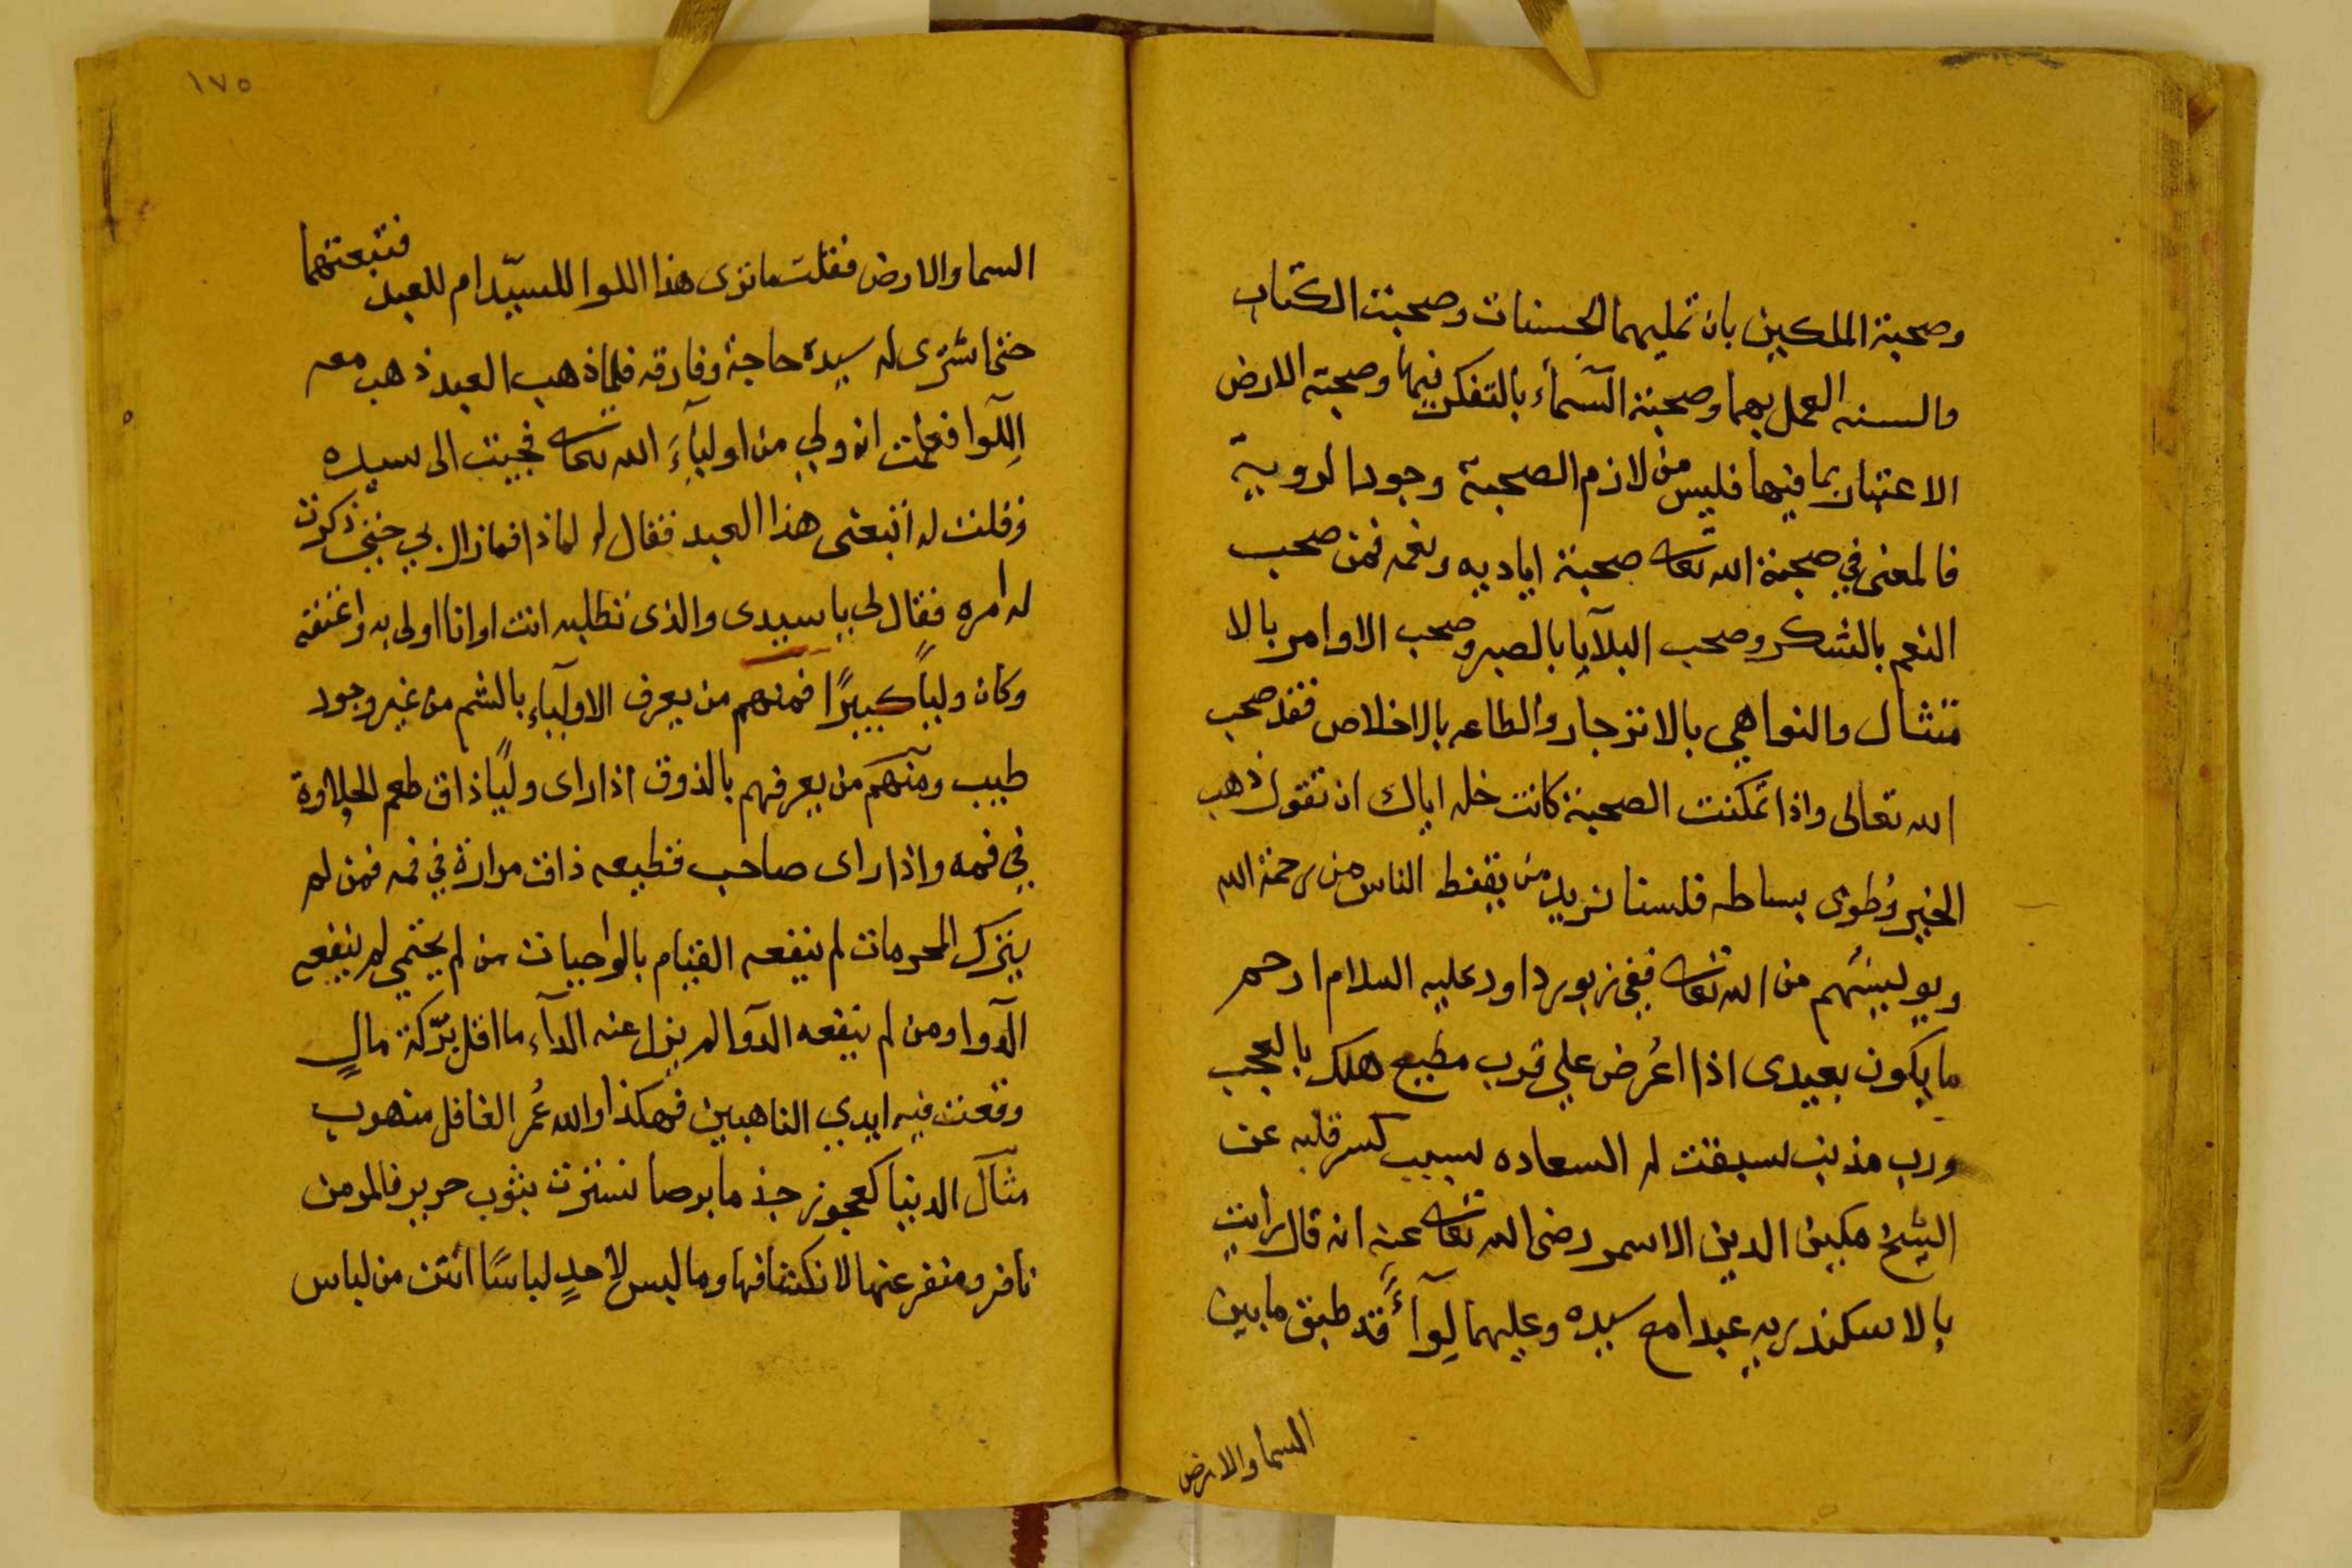 وصحبة الملكين بان تمليهما الحسنات وصحبت الكتاب
والسنه العمل بهما وصحبة السّمآء بالتفكر فيها وصحبة الارض
الاعتبار بما فيها فليس من لازم الصحبة وجود الروية
فالمعنى في صحبة الله تعالى صحبة اياديه ونعمه فمن صحب
النعم بالشكر وصحب البلآيا بالصبر وصحب الاوامر بالا
متثال والنواهي بالانزجار والطاعه بالاخلاص فقد صحب
الله تعالى واذا تمكنت الصحبة كانت خله اياك ان تقول ذهب
الخير وُطوى بساطه فلسنا نريد من يقنط الناس من رحمة الله
ويوليسُهم من الله تعالى ففي زبور داود عليه السلام ارحم
ما يكون بعبدى اذا اعُرض علي فرب مطيع هلك بالعجب
ورب مذنب سبقت له السعاده بسبب كسر قلبه عن
الشيخ مكين الدين الاسمر رضى الله تعالى عنه انه قال رايت
بالاسكندريه عبدا مع سيده وعليهما لِوآءً قد طبق ما بين
السما والارض
١٧٥
السما والارض فقلت ما ترى هذا اللوا للسيّد ام للعبد فتبعتهما
حتى اشترى له سيده حاجة وفارقه فلما ذهب العبد ذهب معه
اللّوا فعلمت انه ولي من اوليآءِ الله تعالى فجيت الى سيده
وقلت له اتبعنى هذا العبد فقال لي لماذا فمازال بي حتى ذكرت
له امره فقال لي يا سيدى والذى تطلبه انت اوانا اولى به واعتقه
وكان وليًا كبيرًا فمنهم من يعرف الاوليآء بالشم من غير وجود
طيب ومنهم من يعرفهم بالذوق اذا راى وليًا ذاق طعم الحلاوة
في فمه واذا راى صاحب قطيعه ذاق مرارة في فمه فمن لم
يترك المحرمات لم ينفعه القيام بالواجبات من لم يحتمي لم ينفعه
الدّوا ومن لم ينفعه الدّوا لم يزل عنه الدآء ما اقل برّكة مالٍ
وقعت فيه ايدي الناهبين فهكذا والله عُمر الغافل منهوب
مثآل الدنيا كعجوز جذما برصا تسترت بثوب حرير فالمومن
نافر ومنفر عنها لانكشافها وما لبس لاحدٍ لباسًا انتن من لباس